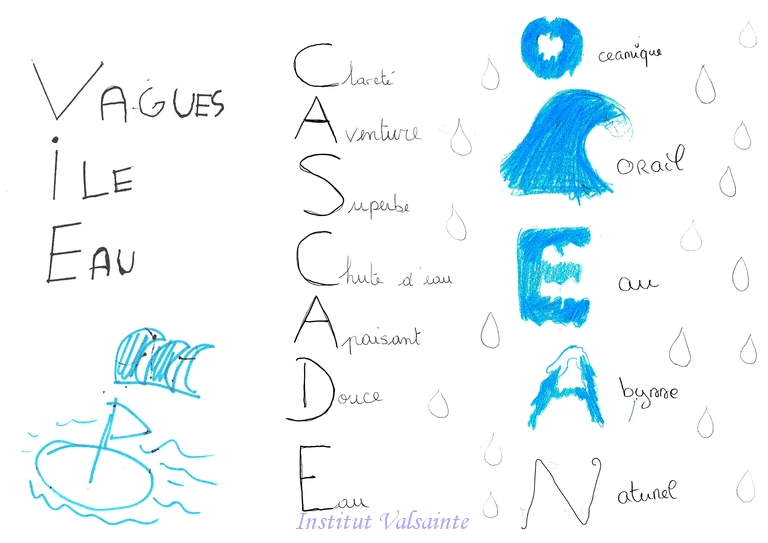 VAGUES
iLE
EAU
Clareté
Aventure
Superbe
Chute d'eau
Apaisant
Douce
Eau
Oceanique
CORAil
Eau
Abysse
Naturel
Institut Valsainte